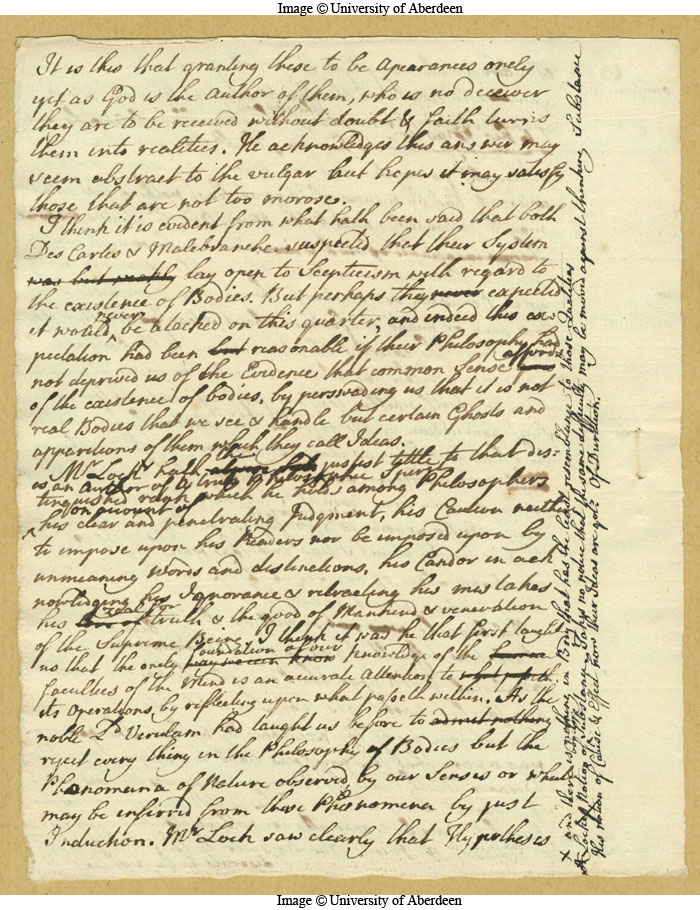 Image © University of Aberdeen
It is this that granting these to be Apearances onely
yet as God is the Author of them, who is no deceiver
they are to be received without doubt & faith turns
them into realities. He acknowledges this answer may
seem abstract to the vulgar but hopes it may satisfy
those that are not too morose.
I think it is evident from what hath been said that both
Des Cartes & Malebranche suspected that their System
was but weakly lay open to Scepticism with regard to
the existence of Bodies. But perhaps they never expected
never
it would be atacked on this quarter, and indeed this ex-
pectation had been but reasonable if their Philosophy had
not deprived us of the Evidence that common Sense afford
of the existence of bodies, by perswading us that it is not
real Bodies that we see & handle but certain Ghosts and
apparitions of them which they call Ideas.
Mr Lock hath just title to that dis=
is an Author of a truly philosophic Spirit
tinguished rank which he holds among Philosophers
on account of
his clear and penetrating Judgment, his Caution neither
to impose upon his Readers nor be imposed upon by
unmeaning words and distinctions, his Candor in ack
nowledging his Ignorance & retracting his mistakes
zeal for
his love of truth & the good of Mankind & veneration
of the Supreme Being. I think it was he that first taught
foundation of our
us that the onely way we can know knowledge of the human
faculties of the Mind is an accurate Attention to what passeth
its Operations, by reflecting upon what passeth within. As the
noble Ld Verulam had taught us before to admit nothing
reject every thing in the Philosophy of Bodies but the
Phænomena of Nature observed by our Senses or what
may be inferred from these Phænomena by just
Induction. Mr Lock saw clearly that Hypothesis
x and there is nothing in Body that has the least resemblance to those Qualities
Lockes Notion of Substance. Takes no notice that the same difficulty may be moved against thinking Substance
His notion of Cause & Effect how their Ideas are got. Of Duration.
Image © University of Aberdeen